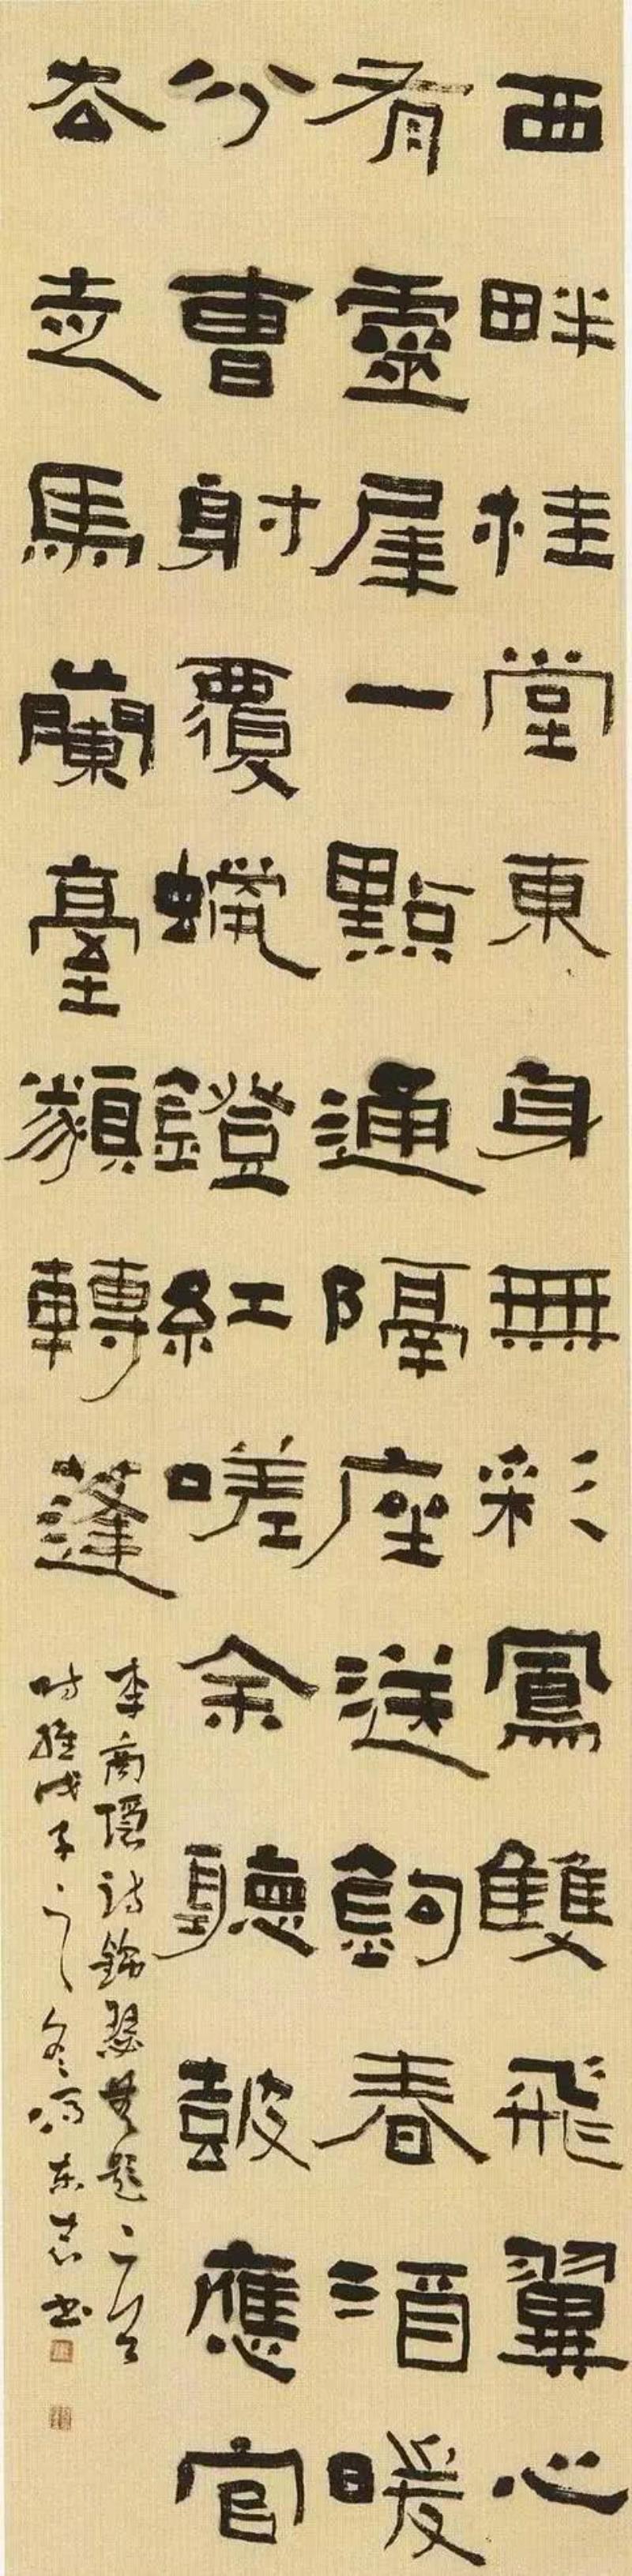 西畔桂堂東身無彩鳳雙飛翼心
有靈犀一點通隔座送鉤春酒暖
分曹射覆蠟鐙紅嗟余聽鼓應官
去走馬蘭臺類轉蓬
李商隱詩錦瑟無題
時維戊子之冬